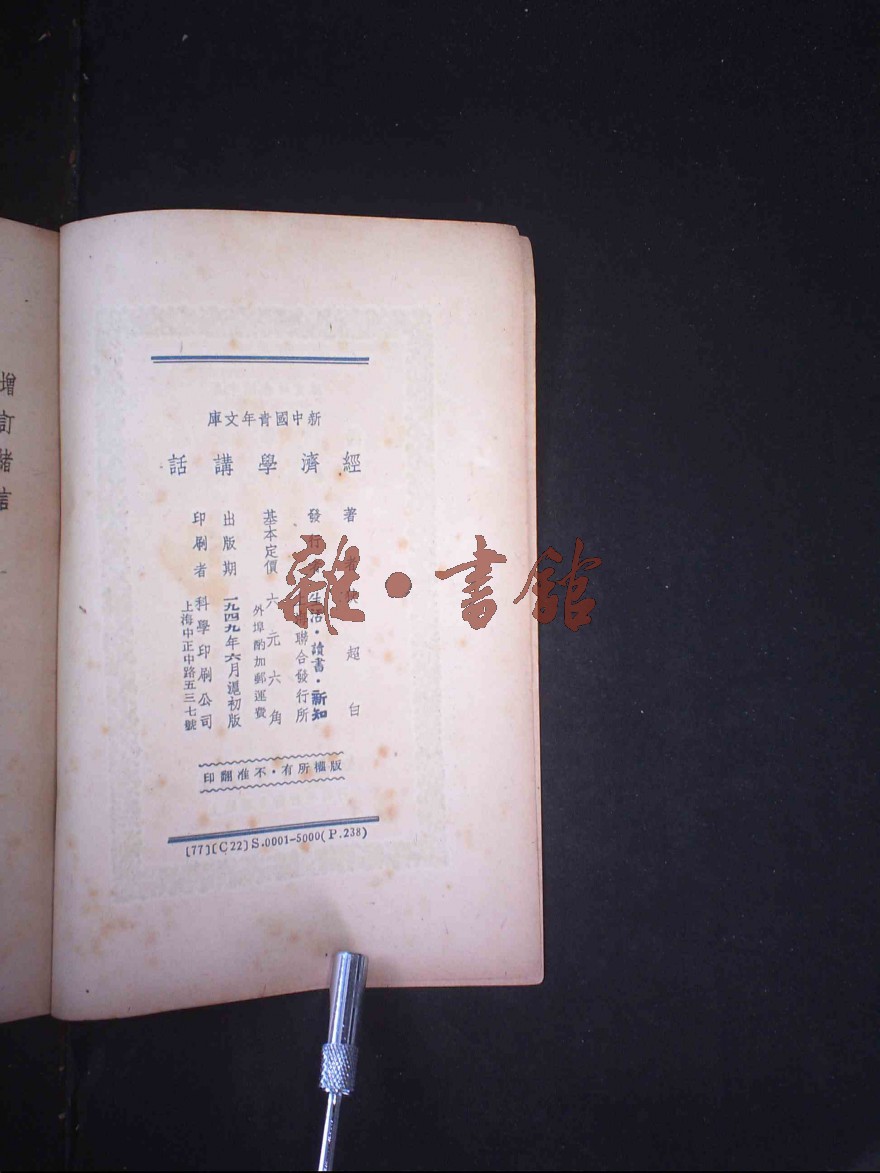 新中國青年文庫
經濟學講話
著者 超白
發行 生活·讀書·新知
聯合發行所
基本定價 六元六角
外埠酌加郵運費
出版期 一九四九年六月滬初版
印刷者 科學印刷公司
上海中正中路五三七號
版權所有·不准翻印
[77][C22]S.0001-5000(P.238)
增訂緒言
雜·書館